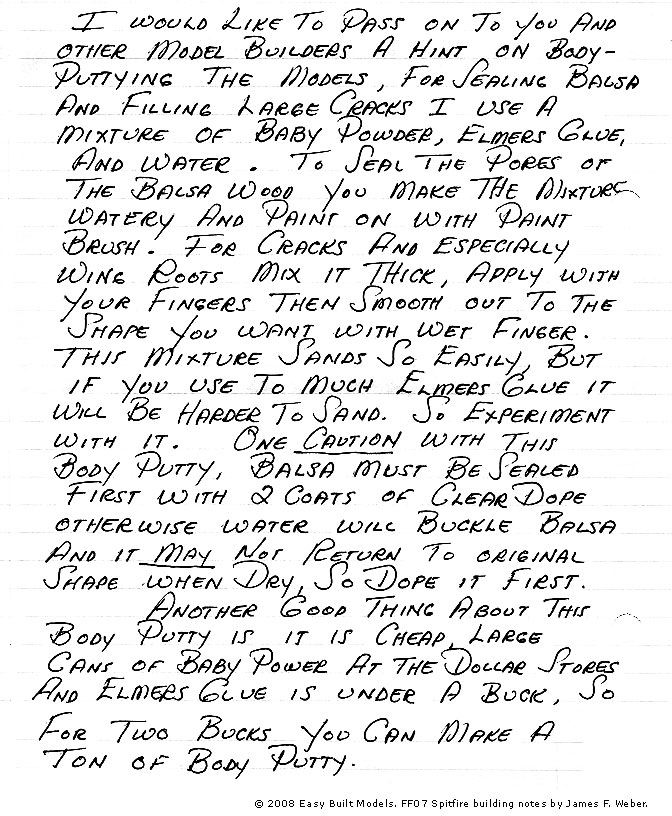 I WOULD LIKE TO PASS ON TO YOU AND
OTHER MODEL BUILDERS A HINT ON BODY-
PUTTYING THE MODELS, FOR SEALING BALSA
AND FILLING LARGE CRACKS I USE A
MIXTURE OF BABY POWDER, ELMERS GLUE,
AND WATER. TO SEAL THE PORES OF
THE BALSA WOOD YOU MAKE THE MIXTURE
WATERY AND PAINT ON WITH PAINT
BRUSH. FOR CRACKS AND ESPECIALLY
WING ROOTS MIX IT THICK, APPLY WITH
YOUR FINGERS THEN SMOOTH OUT TO THE
SHAPE YOU WANT WITH WET FINGER.
THIS MIXTURE SANDS SO EASILY, BUT
IF YOU USE TO MUCH ELMERS GLUE IT
WILL BE HARDER TO SAND. SO EXPERIMENT
WITH IT. ONE CAUTION WITH THIS
BODY PUTTY, BALSA MUST BE SEALED
FIRST WITH 2 COATS OF CLEAR DOPE
OTHERWISE WATER WILL BUCKLE BALSA
AND IT MAY NOT RETURN TO ORIGINAL
SHAPE WHEN DRY, SO DOPE IT FIRST.
ANOTHER GOOD THING ABOUT THIS
BODY PUTTY IS IT IS CHEAP, LARGE
CANS OF BABY POWER AT THE DOLLAR STORES
AND ELMERS GLUE IS UNDER A BUCK, SO
FOR TWO BUCKS YOU CAN MAKE A
TON OF BODY PUTTY.
© 2008 Easy Built Models. FF07 Spitfire building notes by James F. Weber.